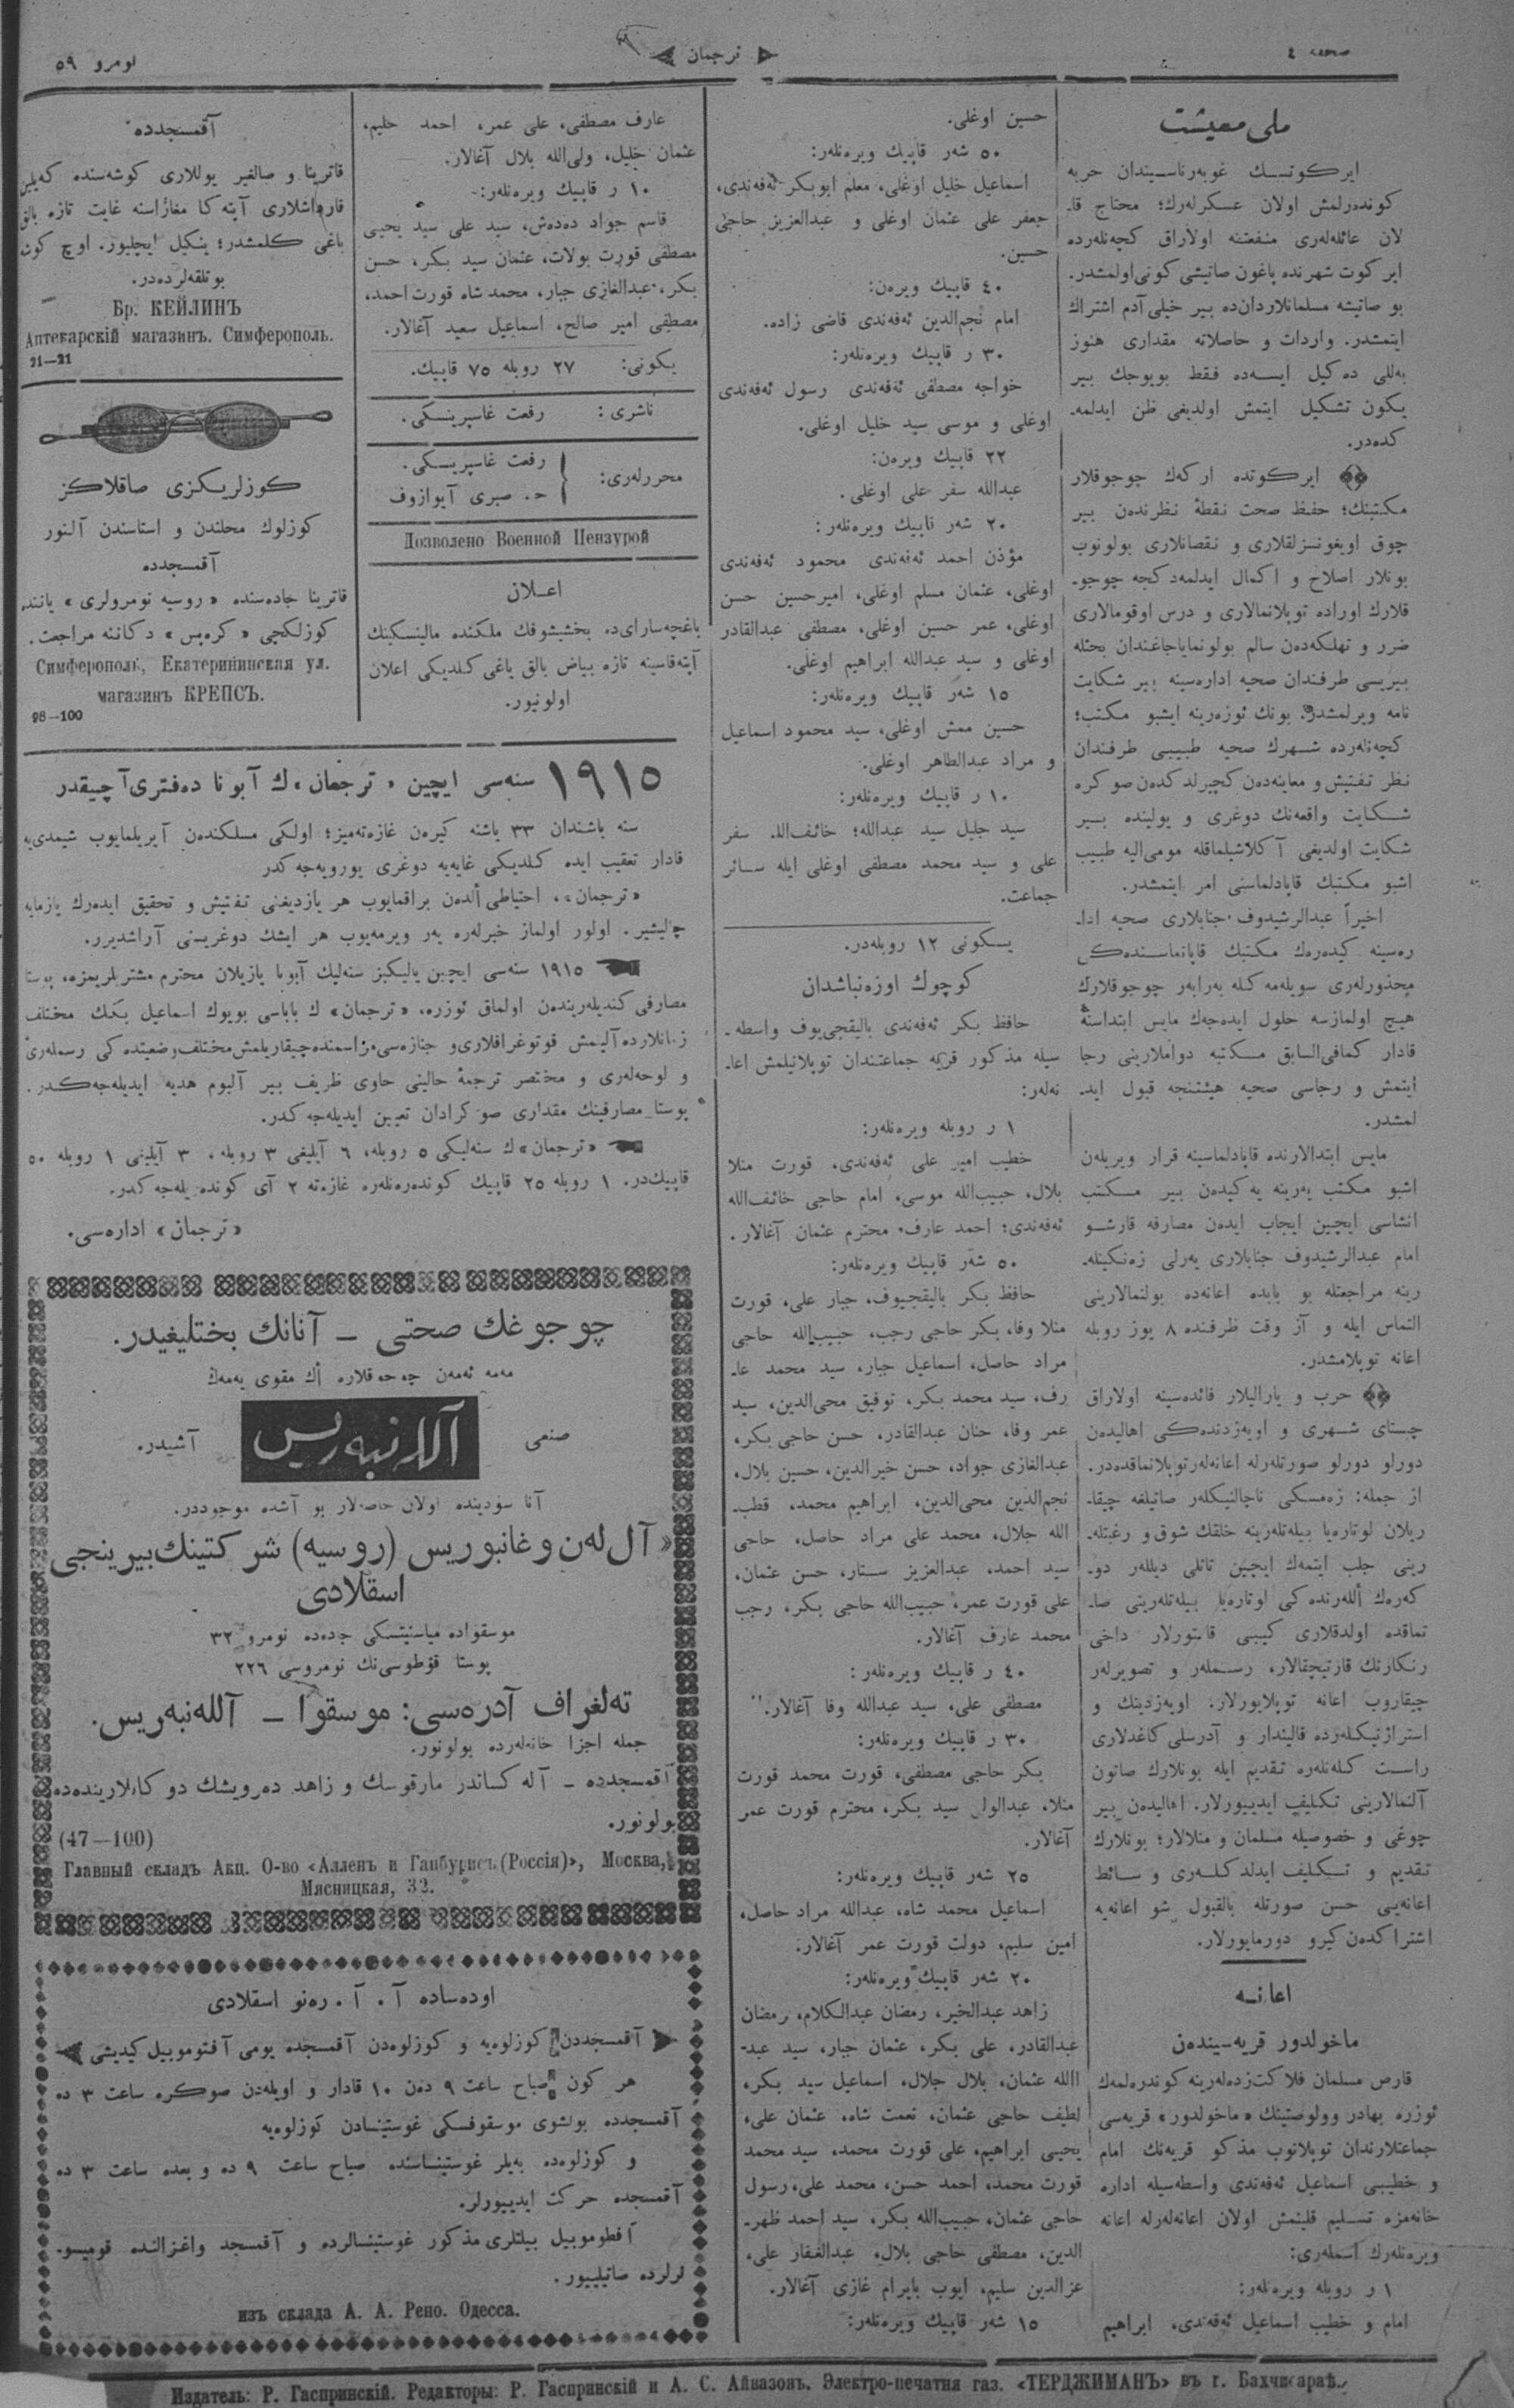 صحیفه ٤
ترجمان
نومرو ٥٩
ملی معیشت
ایرکوتسك غوبه‌رناسیندان حربه
کونده‌رلمش اولان عسکرله‌رك؛ محتاج قا-
لان عائله‌له‌ری منفعتنه اولاراق کچه‌نله‌رده
ایرکوت شهرنده پاغون صاتیشی کونی اولمشدر.
بو صاتیشه مسلمانلاردان‌ده بیر خیلی آدم اشتراك
ایتمشدر. واردات و حاصلاته مقداری هنوز
به‌للی ده‌کیل ایسه‌ده فقط بویوجك بیر
یکون تشکیل ایتمش اولدیغی ظن ایدلمه-
کده‌در.
ایرکوتده ارکه‌ك جوجوقلار
مکتبنك؛ حفظ صحت نقطهٔ نظرنده‌ن بیر
چوق اویغونسزلقلاری و نقصانلاری بولونوب
بونلار اصلاح و اکمال ایدلمه‌دکجه چوجو-
قلارك اوراده توپلانمالاری و درس اوقومالاری
ضرر و تهلکه‌ده‌ن سالم بولونمایاجاغندان بحثله
بیریسی طرفندان صحیه اداره‌سینه بیر شکایت
نامه ویرلمشدر. بونك ئوزه‌رینه ایشبو مکتب؛
کچه‌نله‌رده شهرك صحیه طبیبی طرفندان
نظر تفتیش و معاینه‌ده‌ن کچیرلدکده‌ن صوکره
شکایت واقعه‌نك دوغری و یولینده بیر
شکایت اولدیغی آکلاشیلماقله مومی‌الیه طبیب
اشبو مکتبك قاپادلماسنی امر ایتمشدر.
اخیراً عبدالرشیدوف جنابلاری صحیه ادا-
ره‌سینه کیده‌ره‌ك مکتبك قاپانماسنده‌کی
محذورله‌ری سویله‌مه‌کله به‌رابه‌ر چوجوقلارك
هیچ اولمازسه حلول ایده‌جه‌ك مایس ابتداسنه
قادار کمافی‌السابق مکتبه دواملارینی رجا
ایتمش و رجاسی صحیه هیئتنجه قبول اید-
لمشدر.
مایس ابتدالارنده قاپادلماسینه قرار ویریله‌ن
اشبو مکتب یه‌رینه یه‌کیده‌ن بیر مکتب
انشاسی ایچین ایجاب ایده‌ن مصارفه قارشو
امام عبدالرشیدوف جنابلاری یه‌رلی زه‌نکینله-
رینه مراجعتله بو بابده اعانه‌ده بولنمالارینی
التماس ایله و آز وقت ظرفنده ٨ یوز روبله
اعانه توپلامشدر.
حرب و یارالیلار فائده‌سینه اولاراق
چستای شهری و اویه‌زدنده‌کی اهالیده‌ن
دورلو دورلو صورتله‌رله اعانه‌له‌ر توپلانماقده‌در.
از جمله: زه‌مسکی ناچالنیکله‌ر صاتیلغه چیقا-
ریلان لوتاره‌یا بیله‌تله‌رینه خلقك شوق و رغبتله-
رینی جلب ایتمه‌ك ایچین تاتلی دیلله‌ر دو-
که‌ره‌ك أللەرنده‌کی لوتاره‌یا بیله‌تله‌رینی صا-
تماقده اولدقلاری کیبی قانتورلار داخی
رنکارنك قارتیچقالار، رسمله‌ر و تصویرله‌ر
چیقاروب اعانه توپلایورلار. اویه‌زدینك و
استراژنیکله‌رده قالیندار و آدرسلی کاغدلاری
راست کله‌نله‌ره تقدیم ایله بونلارك صاتون
آلنمالارینی تکلیف ایدییورلار. اهالیده‌ن بیر
چوغی و خصوصیله مسلمان و منلالار؛ بونلارك
تقدیم و تکلیف ایدلدکله‌ری وسائط
اعانه‌یی حسن صورتله بالقبول شو اعانه‌یه
اشتراکده‌ن کیرو دورمایورلار.
اعانه
ماخولدور قریه‌سینده‌ن
قارص مسلمان فلاکت‌زده‌له‌رینه کوندره‌لمه‌ك
ئوزره بهادر وولوصتینك «ماخولدور» قریه‌سی
جماعتلارندان توپلانوب مذکو قریه‌نك امام
و خطیبی اسماعیل ئه‌فه‌ندی واسطه‌سیله اداره
خانه‌مزه تسلیم قلینمش اولان اعانه‌له‌رله اعانه
ویره‌نله‌رك اسمله‌ری:
١ ر روبله ویره‌نله‌ر:
امام و خطیب اسماعیل ئه‌فه‌ندی، ابراهیم
حسین اوغلی.
٥٠ شه‌ر قاپیك ویره‌نله‌ر:
اسماعیل خلیل اوغلی، معلم ابوبکر ئه‌فه‌ندی،
جعفر علی عثمان اوغلی و عبدالعزیز حاجی
حسین.
٤٠ قاپیك ویره‌ن:
امام نجم‌الدین ئه‌فه‌ندی قاضی زاده.
٣٠ ر قاپیك ویره‌نله‌ر:
خواجه مصطفی ئه‌فه‌ندی رسول ئه‌فه‌ندی
اوغلی و موسی سید خلیل اوغلی.
٢٢ قاپیك ویره‌ن:
عبدالله سفر علی اوغلی.
٢٠ شه‌ر قاپیك ویره‌نله‌ر:
مؤذن احمد ئه‌فه‌ندی محمود ئه‌فه‌ندی
اوغلی، عثمان مسلم اوغلی، امیرحسین حسن
اوغلی، عمر حسین اوغلی، مصطفی عبدالقادر
اوغلی و سید عبدالله ابراهیم اوغلی.
١٥ شه‌ر قاپیك ویره‌نله‌ر:
حسین ممش اوغلی، سید محمود اسماعیل
و مراد عبدالطاهر اوغلی.
١٠ ر قاپیك ویره‌نله‌ر:
سید جلیل سید عبدالله؛ خائف‌الله سفر
علی و سید محمد مصطفی اوغلی ایله سائر
جماعت.
یکونی ١٢ روبله‌در.
کوچوك اوزه‌نباشدان
حافظ بکر ئه‌فه‌ندی بالیقجی‌یوف واسطه-
سیله مذکور قریه جماعتندان توپلانیلمش اعا-
نه‌له‌ر:
١ ر روبله ویره‌نله‌ر:
خطیب امیر علی ئه‌فه‌ندی، قورت منلا
بلال، حبیب‌الله موسی، امام حاجی خائف‌الله
ئه‌فه‌ندی؛ احمد عارف، محترم عثمان آغالار.
٥٠ شه‌ر قاپیك ویره‌نله‌ر:
حافظ بکر بالیقجیوف، جبار علی، قورت
منلا وفا، بکر حاجی رجب، حبیب‌الله حاجی
مراد حاصل، اسماعیل جبار، سید محمد عا-
رف، سید محمد بکر، توفیق محی‌الدین، سید
عمر وفا، حنان عبدالقادر، حسن حاجی بکر،
عبدالغازی جواد، حسن خیرالدین، حسین بلال،
نجم‌الدین محی‌الدین، ابراهیم محمد، قطب-
الله جلال، محمد علی مراد حاصل، حاجی
سید احمد، عبدالعزیز ستار، حسن عثمان،
علی قورت عمر، حبیب‌الله حاجی بکر، رجب
محمد عارف آغالار.
٤٠ ر قاپیك ویره‌نله‌ر:
مصطفی علی، سید عبدالله وفا آغالار.
٣٠ ر قاپیك ویره‌نله‌ر:
بکر حاجی مصطفی، قورت محمد قورت
منلا، عبدالولی سید بکر، محترم قورت عمر
آغالار.
٢٥ شه‌ر قاپیك ویره‌نله‌ر:
اسماعیل محمد شاه، عبدالله مراد حاصل،
امین سلیم، دولت قورت عمر آغالار.
٢٠ شه‌ر قاپیك ویره‌نله‌ر:
زاهد عبدالخیر، رمضان عبدالکلام، رمضان
عبدالقادر، علی بکر، عثمان جبار، سید عبد-
الله عثمان، بلال جلال، اسماعیل سید بکر،
لطیف حاجی عثمان، نعمت شاه، عثمان علی،
یحیی ابراهیم، علی قورت محمد، سید محمد
قورت محمد، احمد حسن، محمد علی، رسول
حاجی عثمان، حبیب‌الله بکر، سید احمد ظهر-
الدین، مصطفی حاجی بلال، عبدالغفار علی،
عزالدین سلیم، ایوب بایرام غازی آغالار.
١٥ شه‌ر قاپیك ویره‌نله‌ر:
عارف مصطفی، علی عمر، احمد حلیم،
عثمان خلیل، ولی‌الله بلال آغالار.
١٠ ر قاپیك ویره‌نله‌ر:
قاسم جواد ده‌ده‌ش، سید علی سید یحیی
مصطفی قورت بولات، عثمان سید بکر، حسن
بکر، عبدالغازی جبار، محمد شاه قورت احمد،
مصطفی امیر صالح، اسماعیل سعید آغالار.
یکونی: ٢٧ روبله ٧٥ قاپیك.
ناشری: رفعت غاسپرینسکی.
محررله‌ری: رفعت غاسپرینسکی.
ح. صبری آیوازوف
Дозволено Военной Цензурой
اعلان
باغچه‌سارای‌ده بخشیشوفك ملکنده مالینسکینك
آپته‌قاسینه تازه بیاض بالق یاغی کلدیکی اعلان
اولونیور.
آقمسجدده
قاترینا و صالغیر یوللاری کوشه‌سنده که‌یلین
قارداشلاری آپته‌کا مغازاسنه غایت تازه بالق
یاغی کلمشدر؛ ینکیل ایچلیور. اوچ کوت
بوتلقه‌لرده‌در.
Бр. КЕЙЛИНЪ
Аптекарскій магазинъ. Симферополь.
21—21
کوزلریکزی صاقلاکز
کوزلوك محلندن و استاسندن آلنور
آقمسجدده
قاترینا جاده‌سنده «روسیه نومرولری» یاننده
کوزلکچی «کره‌پس» دکاننه مراجعت.
Симферополь, Екатерининская ул.
магазинъ КРЕПСЪ.
98—100
١٩١٥ سنه‌سی ایچین «ترجمان»ك آبونا ده‌فتری آچیقدر
سنه باشندان ٣٣ یاشنه کیره‌ن غازه‌ته‌میز؛ اولکی مسلکنده‌ن آیریلمایوب شیمدی‌یه
قادار تعقیب ایده کلدیکی غایه‌یه دوغری یورویه‌جه‌کدر
«ترجمان»، احتیاطی ألده‌ن براقمایوب هر یازدیغنی تفتیش و تحقیق ایده‌رك یازمایه
چالیشیر. اولور اولماز خبرله‌ره یه‌ر ویرمه‌یوب هر ایشك دوغریسنی آراشدیرر.
١٩١٥ سنه‌سی ایچین یالیکیز سنه‌لیك آبونا یازیلان محترم مشتریلریمزه، پوستا
مصارفی کندیله‌رینده‌ن اولماق ئوزره، «ترجمان»ك باباسی بویوك اسماعیل بکك مختلف
زمانلارده آلینمش فوتوغرافلاری و جنازه‌سی مراسمنده چیقاریلمش مختلف وضعیتده کی رسمله‌ری
و لوحه‌له‌ری و مختصر ترجمهٔ حالینی حاوی ظریف بیر آلبوم هدیه ایدیله‌جه‌کدر.
پوستا مصارفینك مقداری صوکرادان تعیین ایدیله‌جه‌کدر.
«ترجمان»ك سنه‌لیکی ٥ روبله، ٦ آیلیغی ٣ روبله، ٣ آیلیغی ١ روبله ٥٠
قاپیك‌در. ١ روبله ٢٥ قاپیك کونده‌ره‌نله‌ره غازه‌ته ٢ آی کونده‌ریله‌جه‌کدر.
«ترجمان» اداره‌سی.
چوجوغك صحتی — آنانك بختلیغیدر.
مه‌مه ئه‌مه‌ن چوجوقلاره أك مقوی یه‌مه‌ك
صنعی آلله‌نبه‌ریس آشیدر.
آنا سودینده اولان خاصه‌لار بو آشده موجوددر.
«آل‌له‌ن و غانبوریس (روسیه) شرکتینك بیرینجی
اسقلادی
موسقواده میاسنیتسکی جه‌ده نومرو ٣٢
پوستا قوطوسی‌نك نومروسی ٢٢٦
ته‌لغراف آدره‌سی: موسقوا — آلله‌نبه‌ریس.
جمله اجزا خانه‌له‌رده بولونور.
آقمسجدده — آله‌کساندر مارقوسك و زاهد ده‌رویشك دوکانلارینده‌ده
بولونور.
(47—100)
Главный складъ Акц. О-во «Алленъ и Ганбурисъ (Россія)», Москва,
Мясницкая, 32.
اوده‌ساده آ. آ. ره‌نو اسقلادی
آقمسجددن کوزلوه‌یه و کوزلوه‌دن آقمسجده یومی آفتوموبیل کیدیشی
هر کون صباح ساعت ٩ ده‌ن ١٠ قادار و اویله‌دن صوکره ساعت ٣ ده
آقمسجدده بولشوی موسقوفسکی غوستینسادن کوزلوه‌یه
و کوزلوه‌ده به‌یلر غوستینساسنده صباح ساعت ٩ ده و بعده ساعت ٣ ده
آقمسجده حرکت ایدییورلر.
آفطوموبیل بیلتلری مذکور غوستینسالرده و آقمسجد واغزالنده قومیسو-
لرلرده صاتیلییور.
изъ склада А. А. Рено. Одесса.
Издатель: Р. Гаспринскій. Редакторы: Р. Гаспринскій и А. С. Айвазовъ. Электро-печатня газ. «ТЕРДЖИМАНЪ» въ г. Бахчисараѣ.